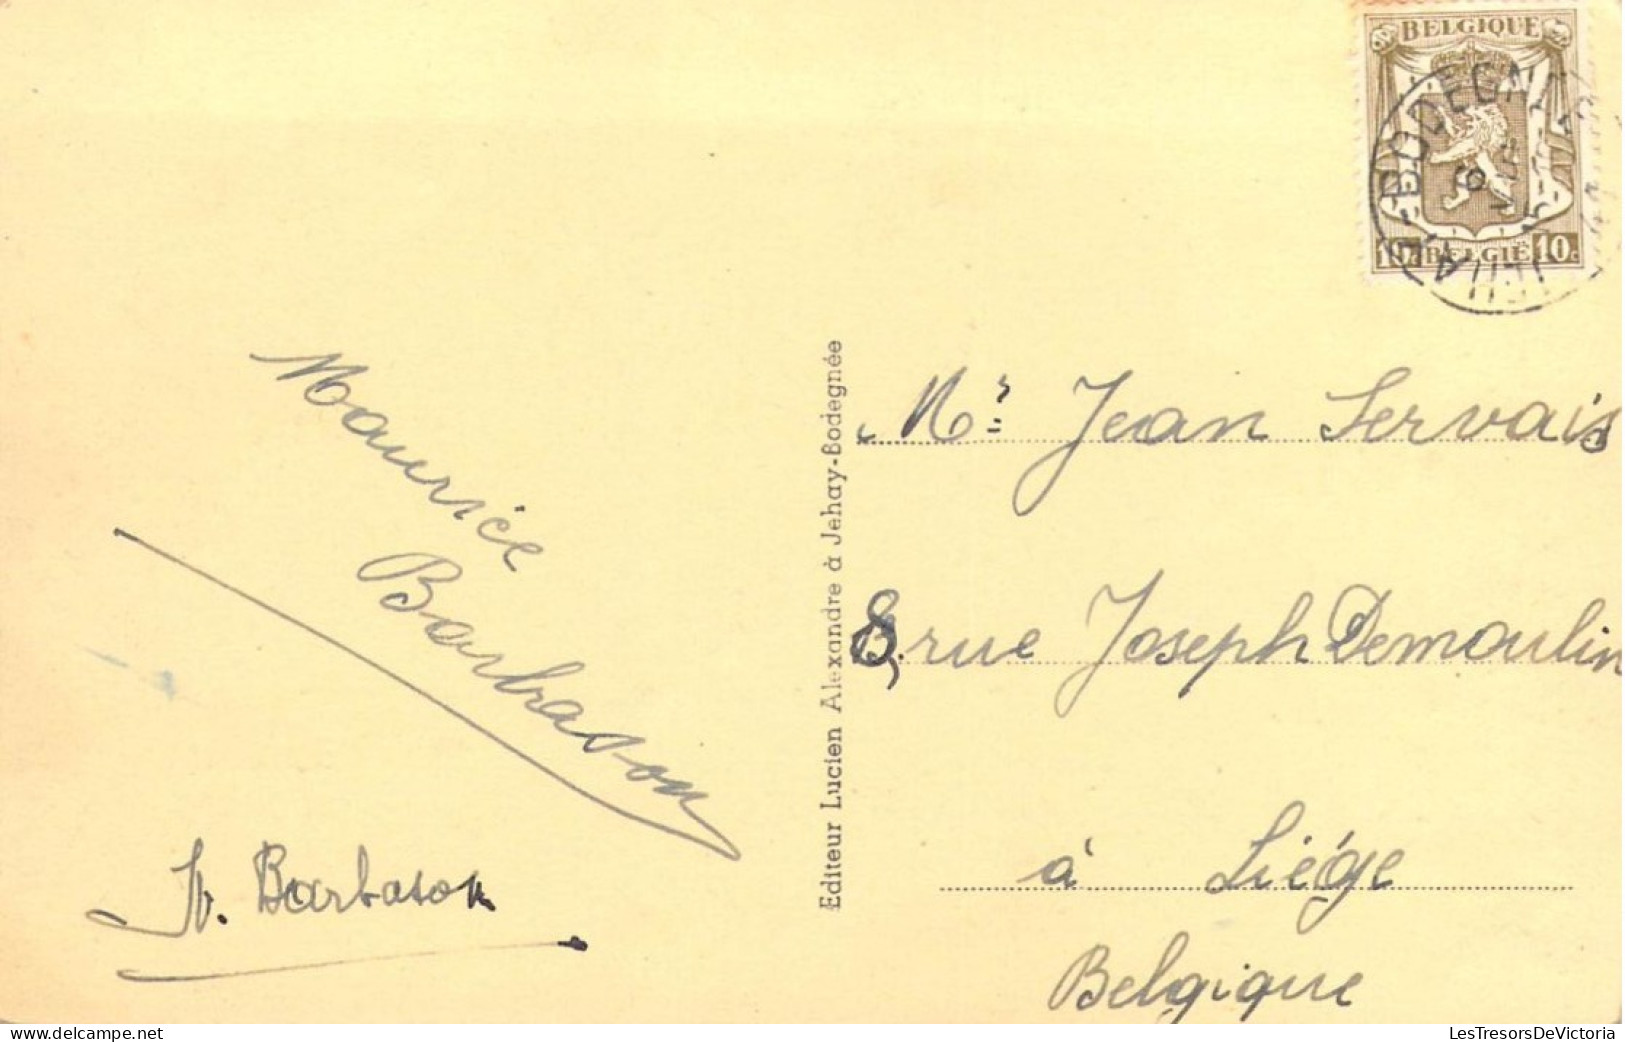 BELGIQUE
10c BELGIË 10c
Maurice
Barbason
Editeur Lucien Alexandre à Jehay-Bodegnée
Mr Jean Servais
8, rue Joseph Demoulin
à Liége
Belgique
Barbason
LesTresorsDeVictoria